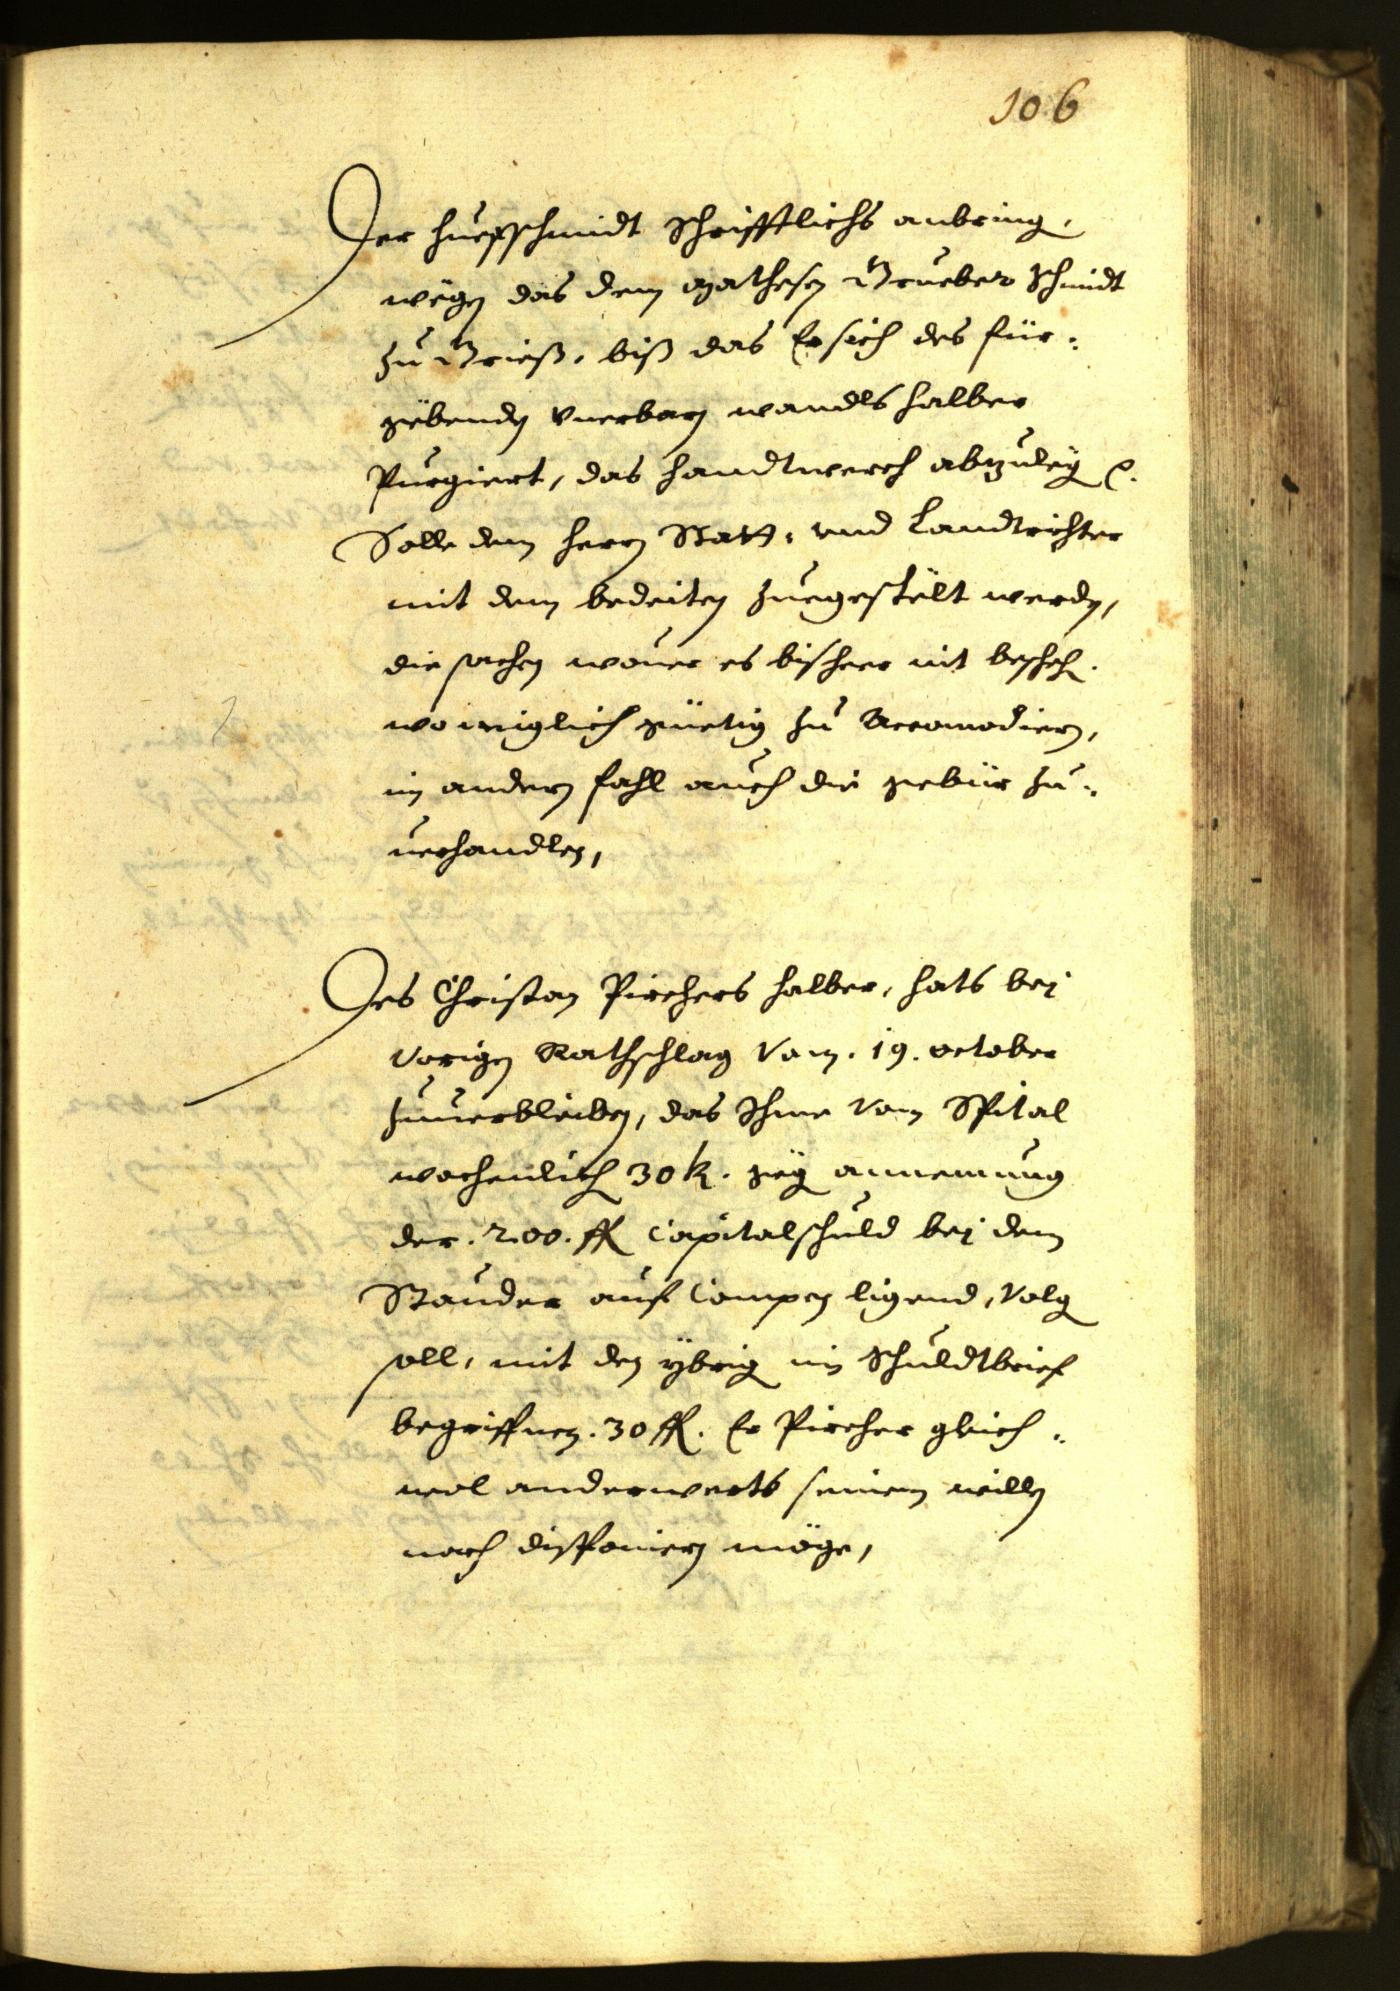 106
Der huefschmidt Schrifftlichs anbring,
wegen das dem Mathesen Grueber Schmidt
zu Grieß, biß das Er sich des für¬
gebenden vnerbarn wandls halber
Purgiert, das handtwerch abzuleg ꝛc.
Solle dem herrn Statt- vnd Landtrichter
mit dem bedeiten zuegestelt werden,
die sachen wouer es bisheer nit bescheh.
wo miglich güetig zu Accomodiern,
in andern fahl auch die gebür zu-
uerhandlen,
Des Christan Pirchers halber, hats bej
vorigen Rathschlag vom .19. october
zuuerbleiben, das Ihme vom Spital
wochenlich 30 k. geg annemung
der .200. fl Capitalschuld bej dem
Stauder auf Compen ligend, volg
soll, mit den ybrig im Schuldtbrief
begriffnen .30 fl. Er Pircher gleich¬
wol anderwerts seinem willen
nach disponiern möge,